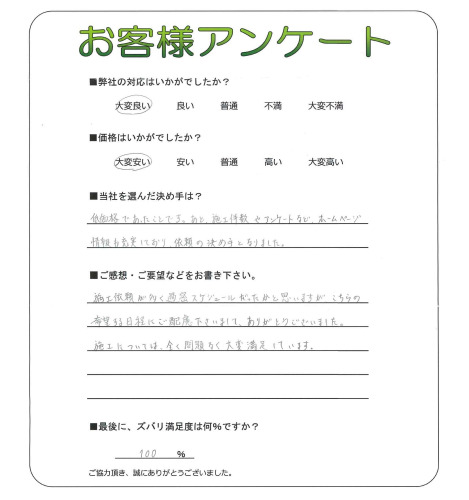 お客様アンケート
■弊社の対応はいかがでしたか?
大変良い 良い 普通 不満 大変不満
■価格はいかがでしたか?
大変安い 安い 普通 高い 大変高い
■当社を選んだ決め手は?
低価格であったことです。あと、施工件数やアンケートなど、ホームページ
情報も充実しており、依頼の決め手となりました。
■ご感想・ご要望などをお書き下さい。
施工依頼が多く過密スケジュールだったかと思いますが こちらの
希望する日程にご配慮下さいまして、ありがとうございました。
施工については、全く問題なく大変満足しています。
■最後に、ズバリ満足度は何%ですか?
100 %
ご協力頂き、誠にありがとうございました。